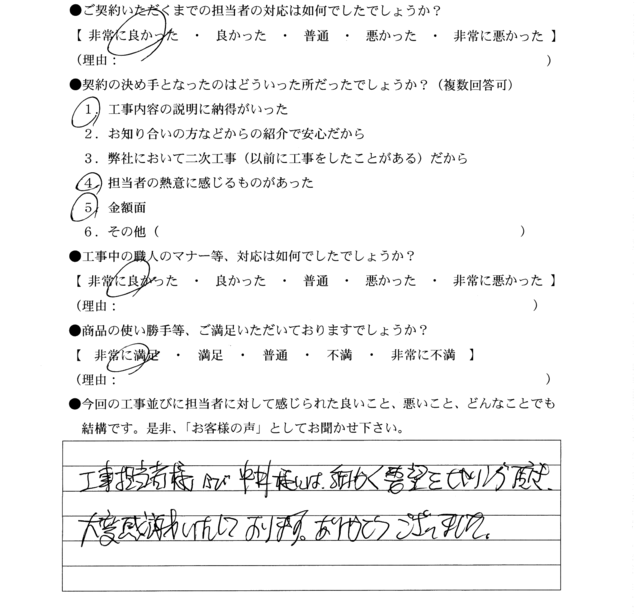 ●ご契約いただくまでの担当者の対応は如何でしたでしょうか？
【 非常に良かった ・ 良かった ・ 普通 ・ 悪かった ・ 非常に悪かった 】
（理由： ）
●契約の決め手となったのはどういった所だったでしょうか？（複数回答可）
1．工事内容の説明に納得がいった
2．お知り合いの方などからの紹介で安心だから
3．弊社において二次工事（以前に工事をしたことがある）だから
4．担当者の熱意に感じるものがあった
5．金額面
6．その他（ ）
●工事中の職人のマナー等、対応は如何でしたでしょうか？
【 非常に良かった ・ 良かった ・ 普通 ・ 悪かった ・ 非常に悪かった 】
（理由： ）
●商品の使い勝手等、ご満足いただいておりますでしょうか？
【 非常に満足 ・ 満足 ・ 普通 ・ 不満 ・ 非常に不満 】
（理由： ）
●今回の工事並びに担当者に対して感じられた良いこと、悪いこと、どんなことでも
結構です。是非、「お客様の声」としてお聞かせ下さい。
工事担当者様及び 様には、細かく要望を
大変感謝いたしております。ありがとうございました。